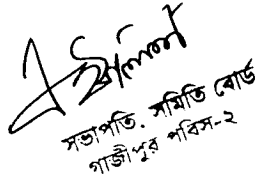 সভাপতি. সমিতি বোর্ড
গাজীপুর পবিস-২